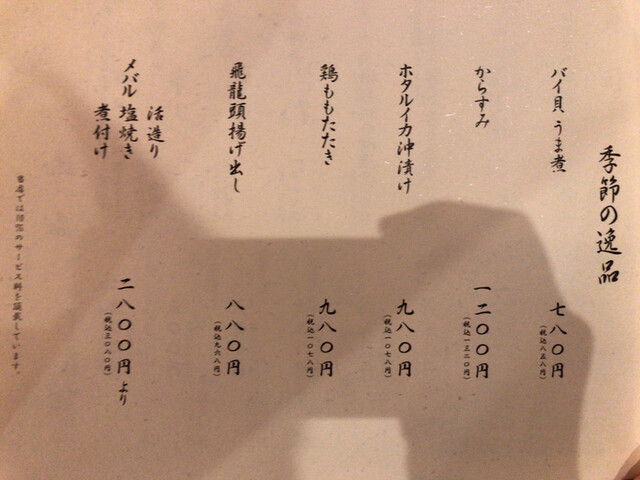 季節の逸品
バイ貝 うま煮
七八〇円
(税込八五八円)
からすみ
一二〇〇円
(税込一三二〇円)
ホタルイカ沖漬け
九八〇円
(税込一〇七八円)
鶏ももたたき
九八〇円
(税込一〇七八円)
飛龍頭揚げ出し
八八〇円
(税込九六八円)
活造り
メバル 塩焼き
煮付け
二八〇〇円より
(税込三〇八〇円)
当店では10%のサービス料を頂戴しています。